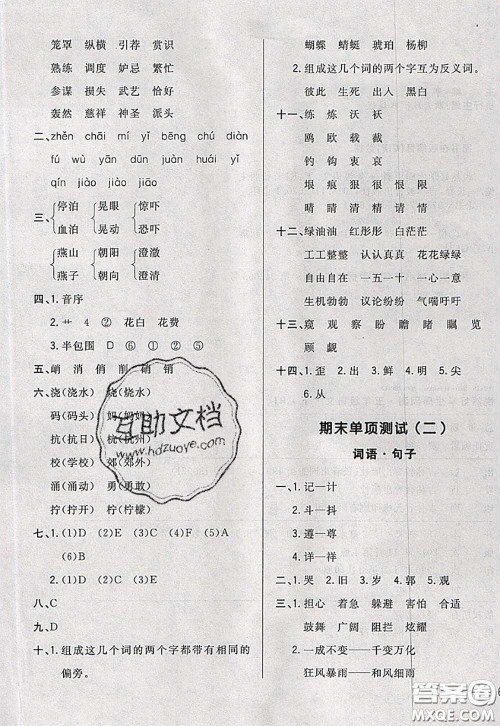 笼罩 纵横 引荐 赏识
熟练 调度 妒忌 繁忙
参谋 损失 武艺 恰好
轰然 慈祥 神圣 派头
二、zhěn chāi mí yǐ bēng chú diàn
fú wū yù jiā fù ruǎn huái yǐ
qín jiào jiāo
三、停泊 晃眼 惊吓
血泊 晃动 恐吓
燕山 朝阳 澄澈
燕子 朝向 澄清
四、1.音序
2.艹 4 ② 花白 花费
3.半包围 D ⑥ ① ② ⑤
五、峭 消 俏 削 硝 销
六、浇(浇水) 绕(绕水)
码(码头) 妈(妈妈)
抗(抗日) 杭(杭州)
校(学校) 郊(郊外)
涌(涌动) 勇(勇敢)
拧(拧开) 柠(柠檬)
七、1.(1)D (2)E (3)C (4)F (5)A
(6)B
2.(1)D (2)C (3)B (4)A
八、C
九、D
十、1.组成这几个词的两个字都带有相同的
偏旁。
蝴蝶 蜻蜓 琥珀 杨柳
2.组成这几个词的两个字互为反义词。
彼此 生死 出入 黑白
十一、练 炼 沃 袄
鸥 欧 载 截
钓 钩 哀 衷
垠 痕 狠 很 恨 限
晴 睛 清 情 请 精
十二、绿油油 红彤彤 白茫茫
工工整整 认认真真 花花绿绿
自由自在 一五一十 一心一意
生机勃勃 议论纷纷 气喘吁吁
十三、窥 观 察 盼 瞻 睹 瞩 览
顾 觑
十四、1.歪 2.出 3.鲜 4.明 5.尖
6.从
期末单项测试(二)
词语·句子
一、1.记—计
2.斗—抖
3.遵—尊
4.详—祥
二、1.哭 2.旧 3.岁 4.郭 5.观
三、1.担心 着急 躲避 宿营 合适
鼓舞 广阔 阻拦 炫耀
2.一成不变——千变万化
狂风暴雨——和风细雨
互助文档
www.hdzuoye.com
答案圈
MXQE.COM